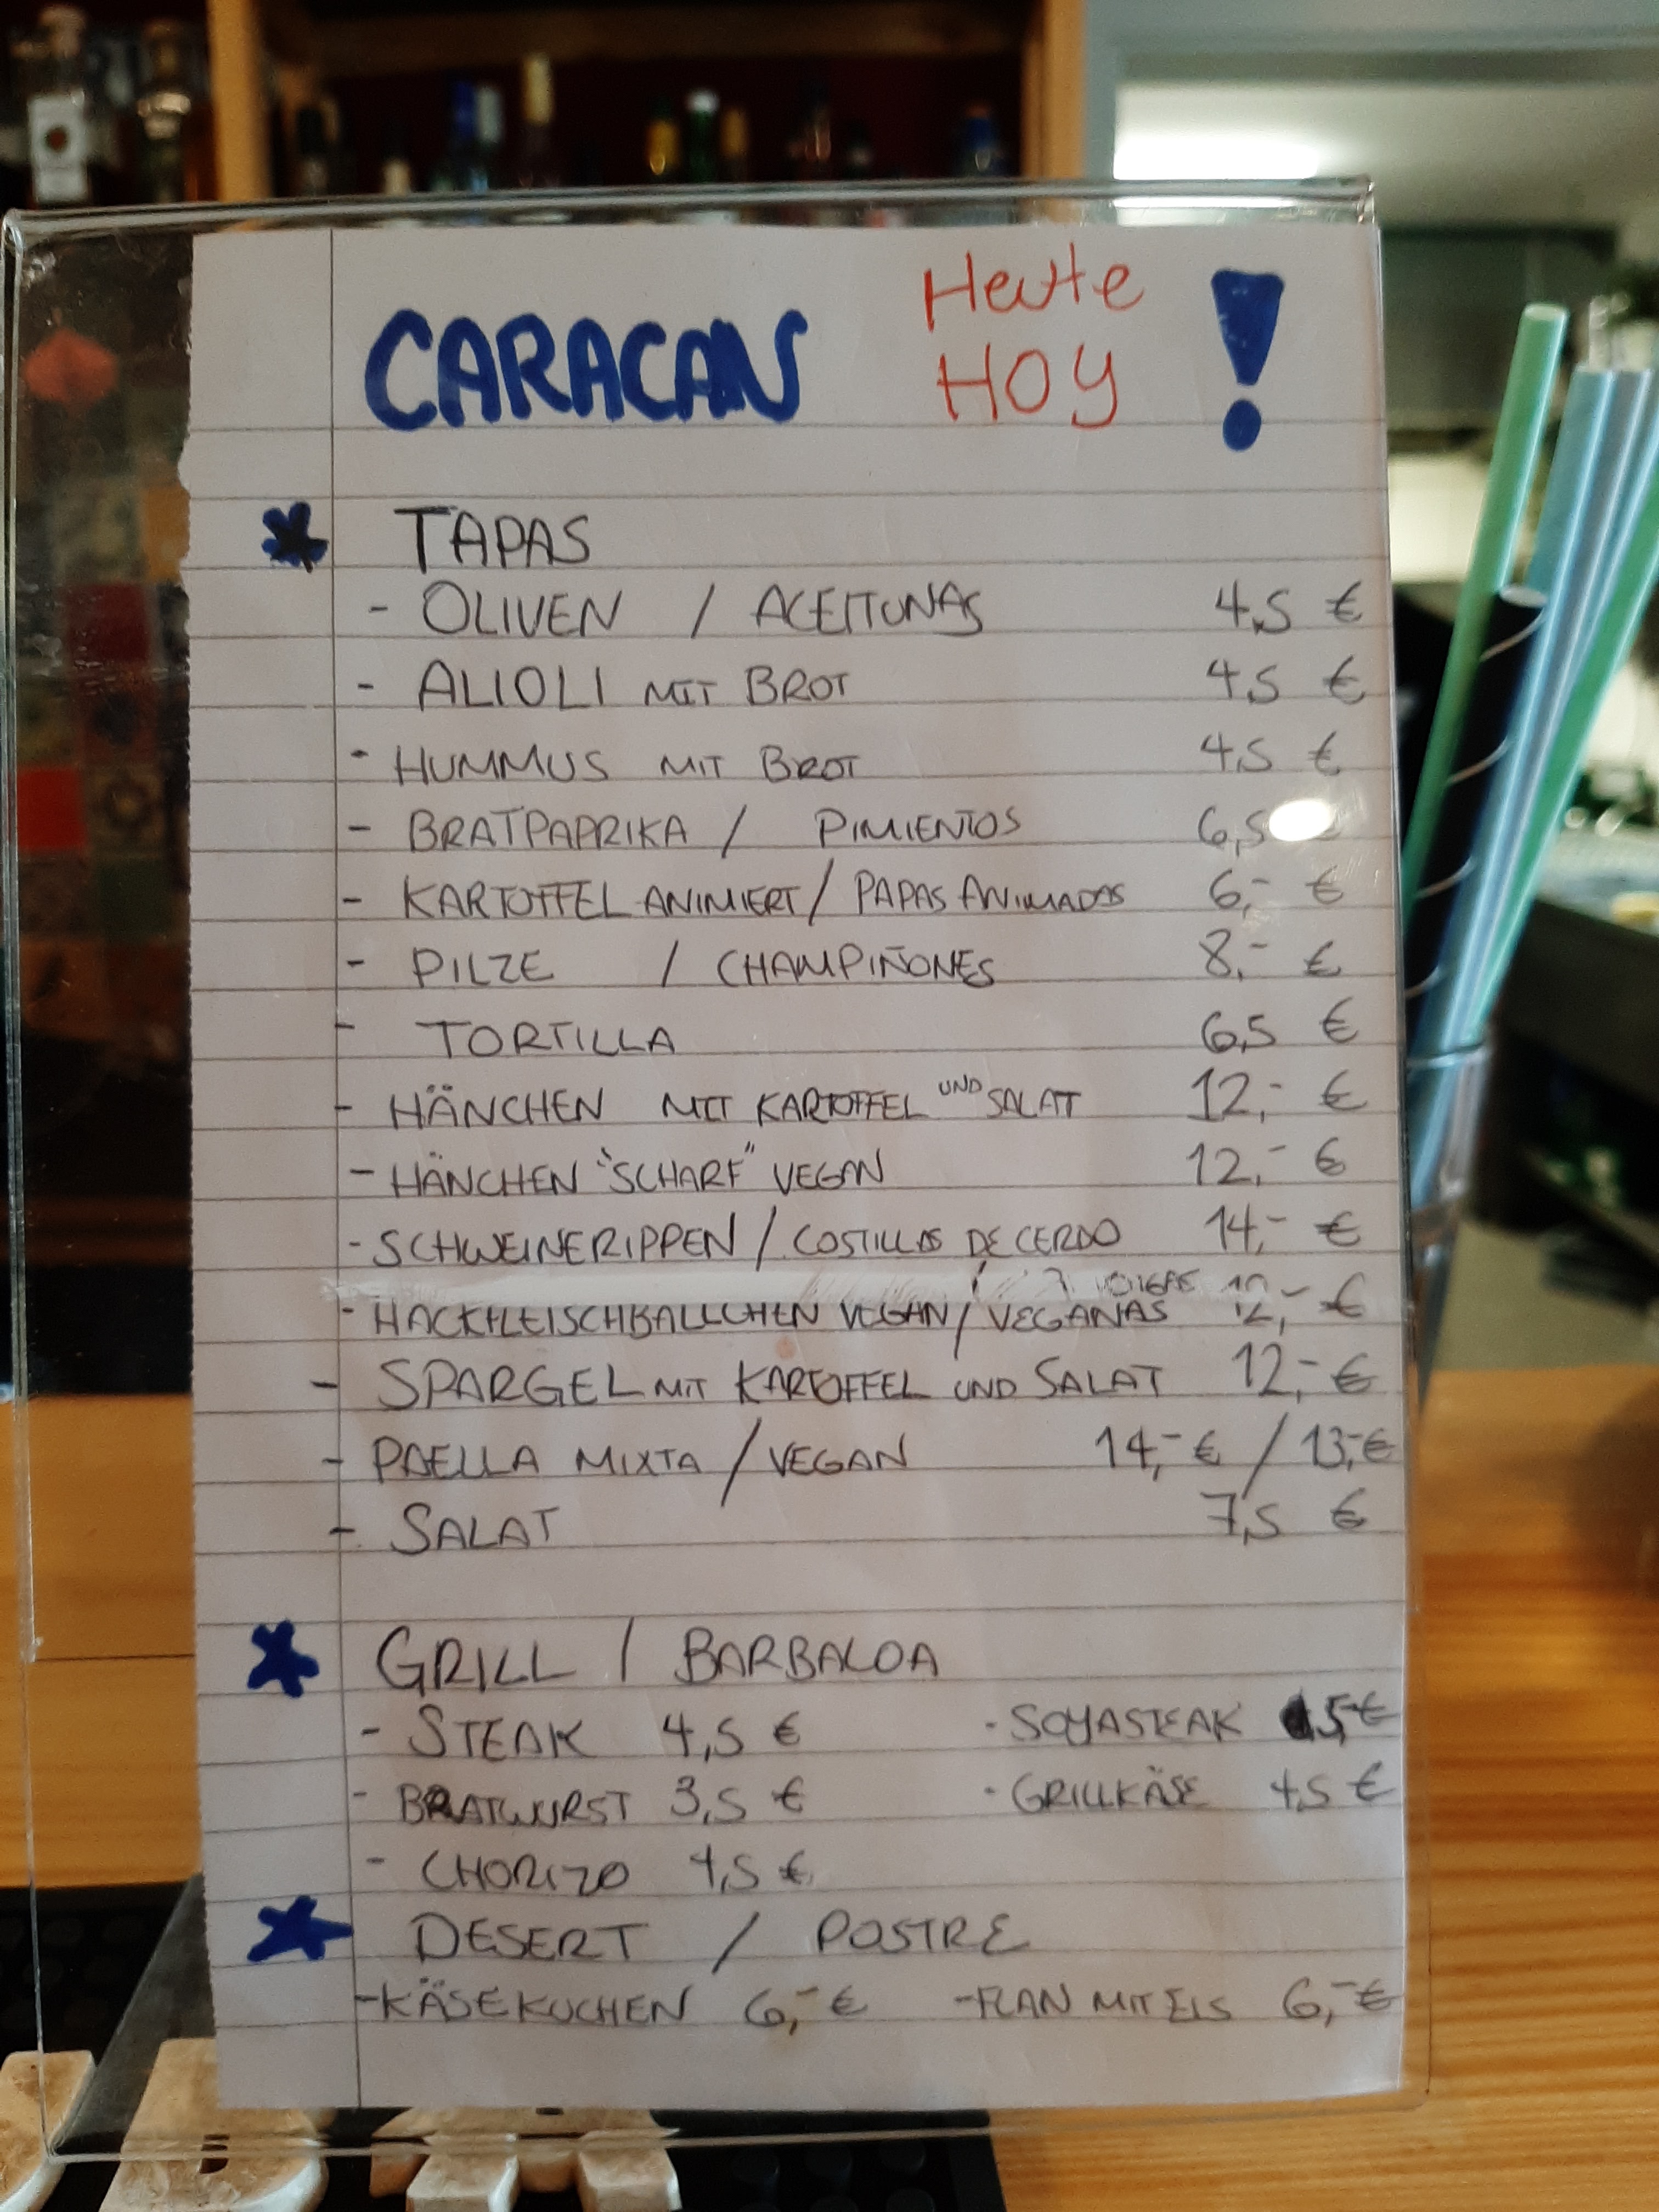 CARACAN Heute
HOY !
TAPAS
- OLIVEN / ACEITUNAS 4,5 €
- ALIOLI MIT BROT 4,5 €
- HUMMUS MIT BROT 4,5 €
- BRATPAPRIKA / PIMIENTOS 6,5
- KARTOFFEL ANIMIERT / PAPAS ANIMADAS 6,- €
- PILZE / CHAMPIÑONES 8,- €
- TORTILLA 6,5 €
- HÄNCHEN MIT KARTOFFEL UND SALAT 12,- €
- HÄNCHEN "SCHARF" VEGAN 12,- €
- SCHWEINERIPPEN / COSTILLAS DE CERDO 14,- €
- HACKFLEISCHBÄLLCHEN VEGAN / VEGANAS 12,- €
- SPARGEL MIT KARTOFFEL UND SALAT 12,- €
- PAELLA MIXTA / VEGAN 14,- € / 13,- €
- SALAT 7,5 €
GRILL / BARBACOA
- STEAK 4,5 € - SOYASTEAK 5,- €
- BRATWURST 3,5 € - GRILLKÄSE 4,5 €
- CHORIZO 4,5 €
DESERT / POSTRE
- KÄSEKUCHEN 6,- € - FLAN MIT EIS 6,- €